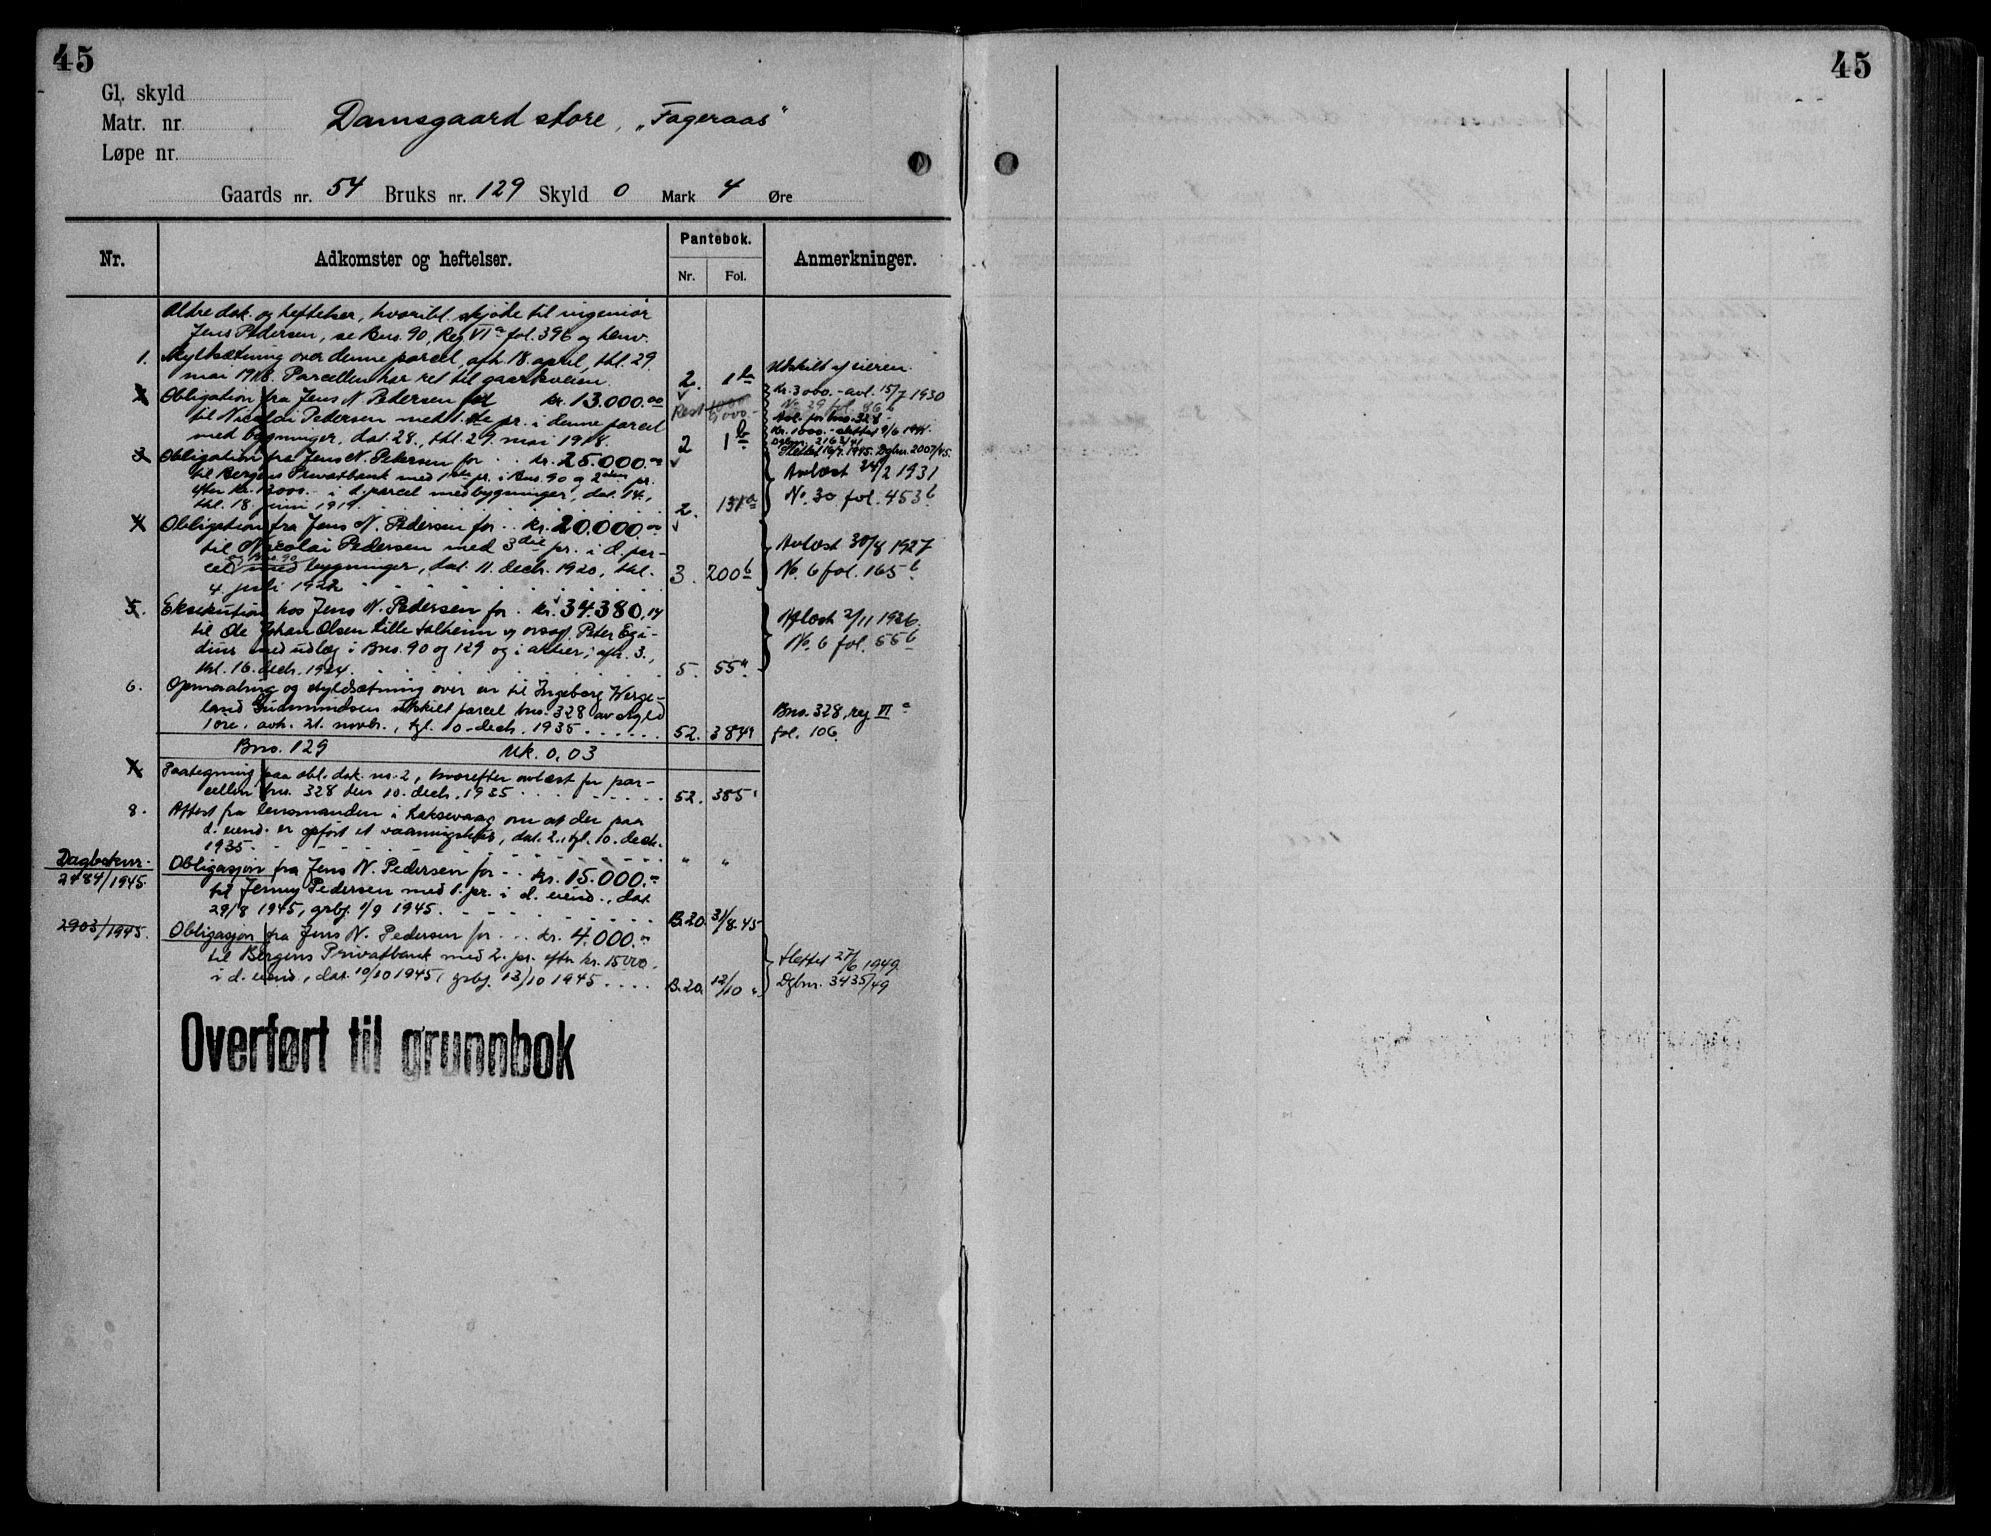 45
45
Gl. skyld
Matr. nr.
Løpe nr.
Damsgaard store, „Fageraas"
Gaards nr. 54 Bruks nr. 129 Skyld 0 Mark 4 Øre
Nr.
Adkomster og heftelser.
Pantebok.
Nr. Fol.
Anmerkninger.
Ældre dok. og heftelser, hvoribl. skjøte til ingeniør
Jens Pedersen, se Bns. 90, Reg. VI a fol. 396 og henv.
1. Skyldsætning over denne parcel, afh. 18. april, thl. 29.
mai 1918. Parcellen har ret til gaardsveien. 2. 1 b Utskilt af eieren.
2 Obligation fra Jens N. Pedersen for kr. 13.000.00 Rest Kr. 3000.- avl. 15/7 1930
No 29 fol. 86 b
til Nicolai Pedersen med 1ste pr. i denne parcel Avl. for bns. 328 -
Kr. 1000.- slettet 9/6 1941.
Dgbnr. 2163/41
med bygninger, dat. 28., thl. 29. mai 1918. 2 1 b Slettet 16/7 1945. Dgbnr. 2007/45.
3 Obligation fra Jens N. Pedersen for kr. 25.000.00
til Bergens Privatbank med 1ste pr. i Bns. 90 og 2den pr. Avlæst 24/2 1931
efter kr. 13000.- i d. parcel med bygninger, dat. 14.,
thl. 18. juni 1919. 2. 131 a No. 30 fol. 453 b
4 Obligation fra Jens N. Pedersen for kr. 20.000.00
til Nicolai Pedersen med 3die pr. i d. par- Avlæst 30/8 1927
og Bns. 90
cel med bygninger, dat. 11. decb. 1920, thl. 3. 200 b No. 6 fol. 165 b
4. juli 1922
5. Eksekution hos Jens N. Pedersen for kr. 34.380,14
til Ole Johan Olsen Lille Solheim og Peter Egi- Aflæst 2/11 1926.
dius med udlæg i Bns. 90 og 129 og i aktier, afh. 3., No. 6 fol. 55 b
thl. 16. decb. 1924. 5. 55 a
6. Opmaaling og skyldsætning over en til Ingeborg Werge-
land Gudmundsen utskilt parcel bns. 328 av skyld Bns. 328, reg VI a
1 øre, avh. 21. novbr., tgl. 10. decb. 1935. 52. 384 a fol. 106.
Bns. 129 Mk. 0,03
7 Paategning paa obl. dok. nr. 2, hvorefter avlæst for par-
cellen bns. 328 den 10. decb. 1935. 52. 385 a
8. Attest fra lensmanden i Laksevaag om at der paa
d. eiend. er opført et vaaningshus, dat. 2., tgl. 10. decb.
1935. " "
Dagboknr.
2484/1945. Obligasjon fra Jens N. Pedersen for kr. 15.000.-
til Jenny Pedersen med 1. pr. i d. eiend., dat.
29/8 1945, grbf. 1/9 1945. B. 20. 31/8.45
2903/1945. Obligasjon fra Jens N. Pedersen for kr. 4.000.-
til Bergens Privatbank med 2. pr. efter kr. 15000.- Slettet 27/6 1949
i d. eiend., dat. 10/10 1945, grbf. 13/10 1945. B. 20. 12/10 " Dgbnr. 3435/49
Overført til grunnbok